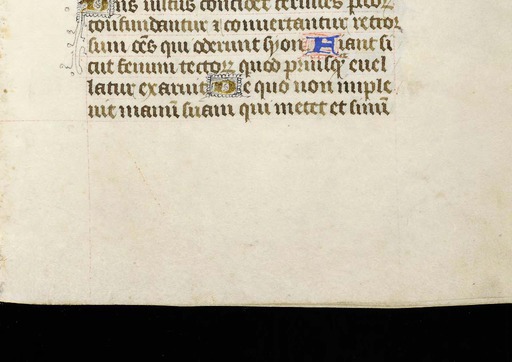 Dñs iustus concidet ceruices pctorꝝ
confundantur ⁊ conuertantur retror
sum oēs qui oderunt syon Fiant si
cut fenum tectorꝝ quod priusqͣ euel
latur exaruit De quo non imple
uit manū suam qui metet et sinū